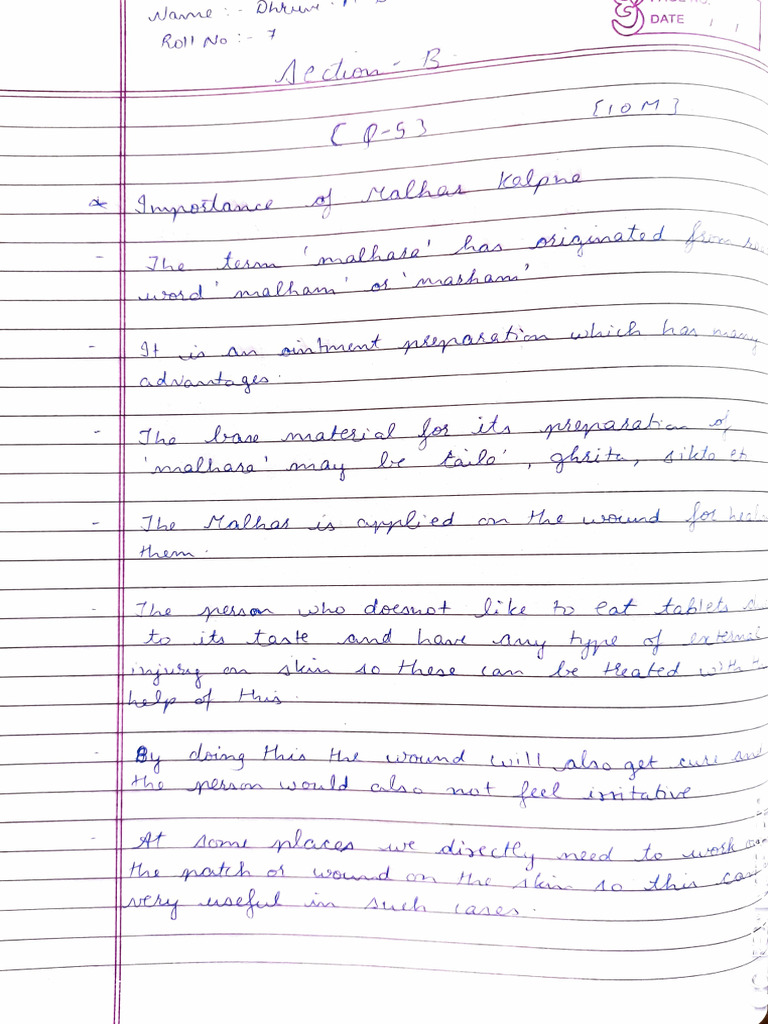 Name :- Dhruv
Roll No :- 7
DATE
Section - B
[10M]
(Q-5)
* Importance of Malhar Kalpna
- The term 'malhara' has originated from
word 'malham' or 'marham'
- It is an ointment preparation which has many
advantages.
- The base material for its preparation of
'malhara' may be taila', ghrita, sikta et
- The Malhar is applied on the wound for
them.
- The person who doesnot like to eat tablets
to its taste and have any type of external
injury on skin so these can be treated with
help of this.
- By doing this the wound will also get cure and
the person would also not feel irritative
- At some places we directly need to work
the patch or wound on the skin so this can
very useful in such cases.